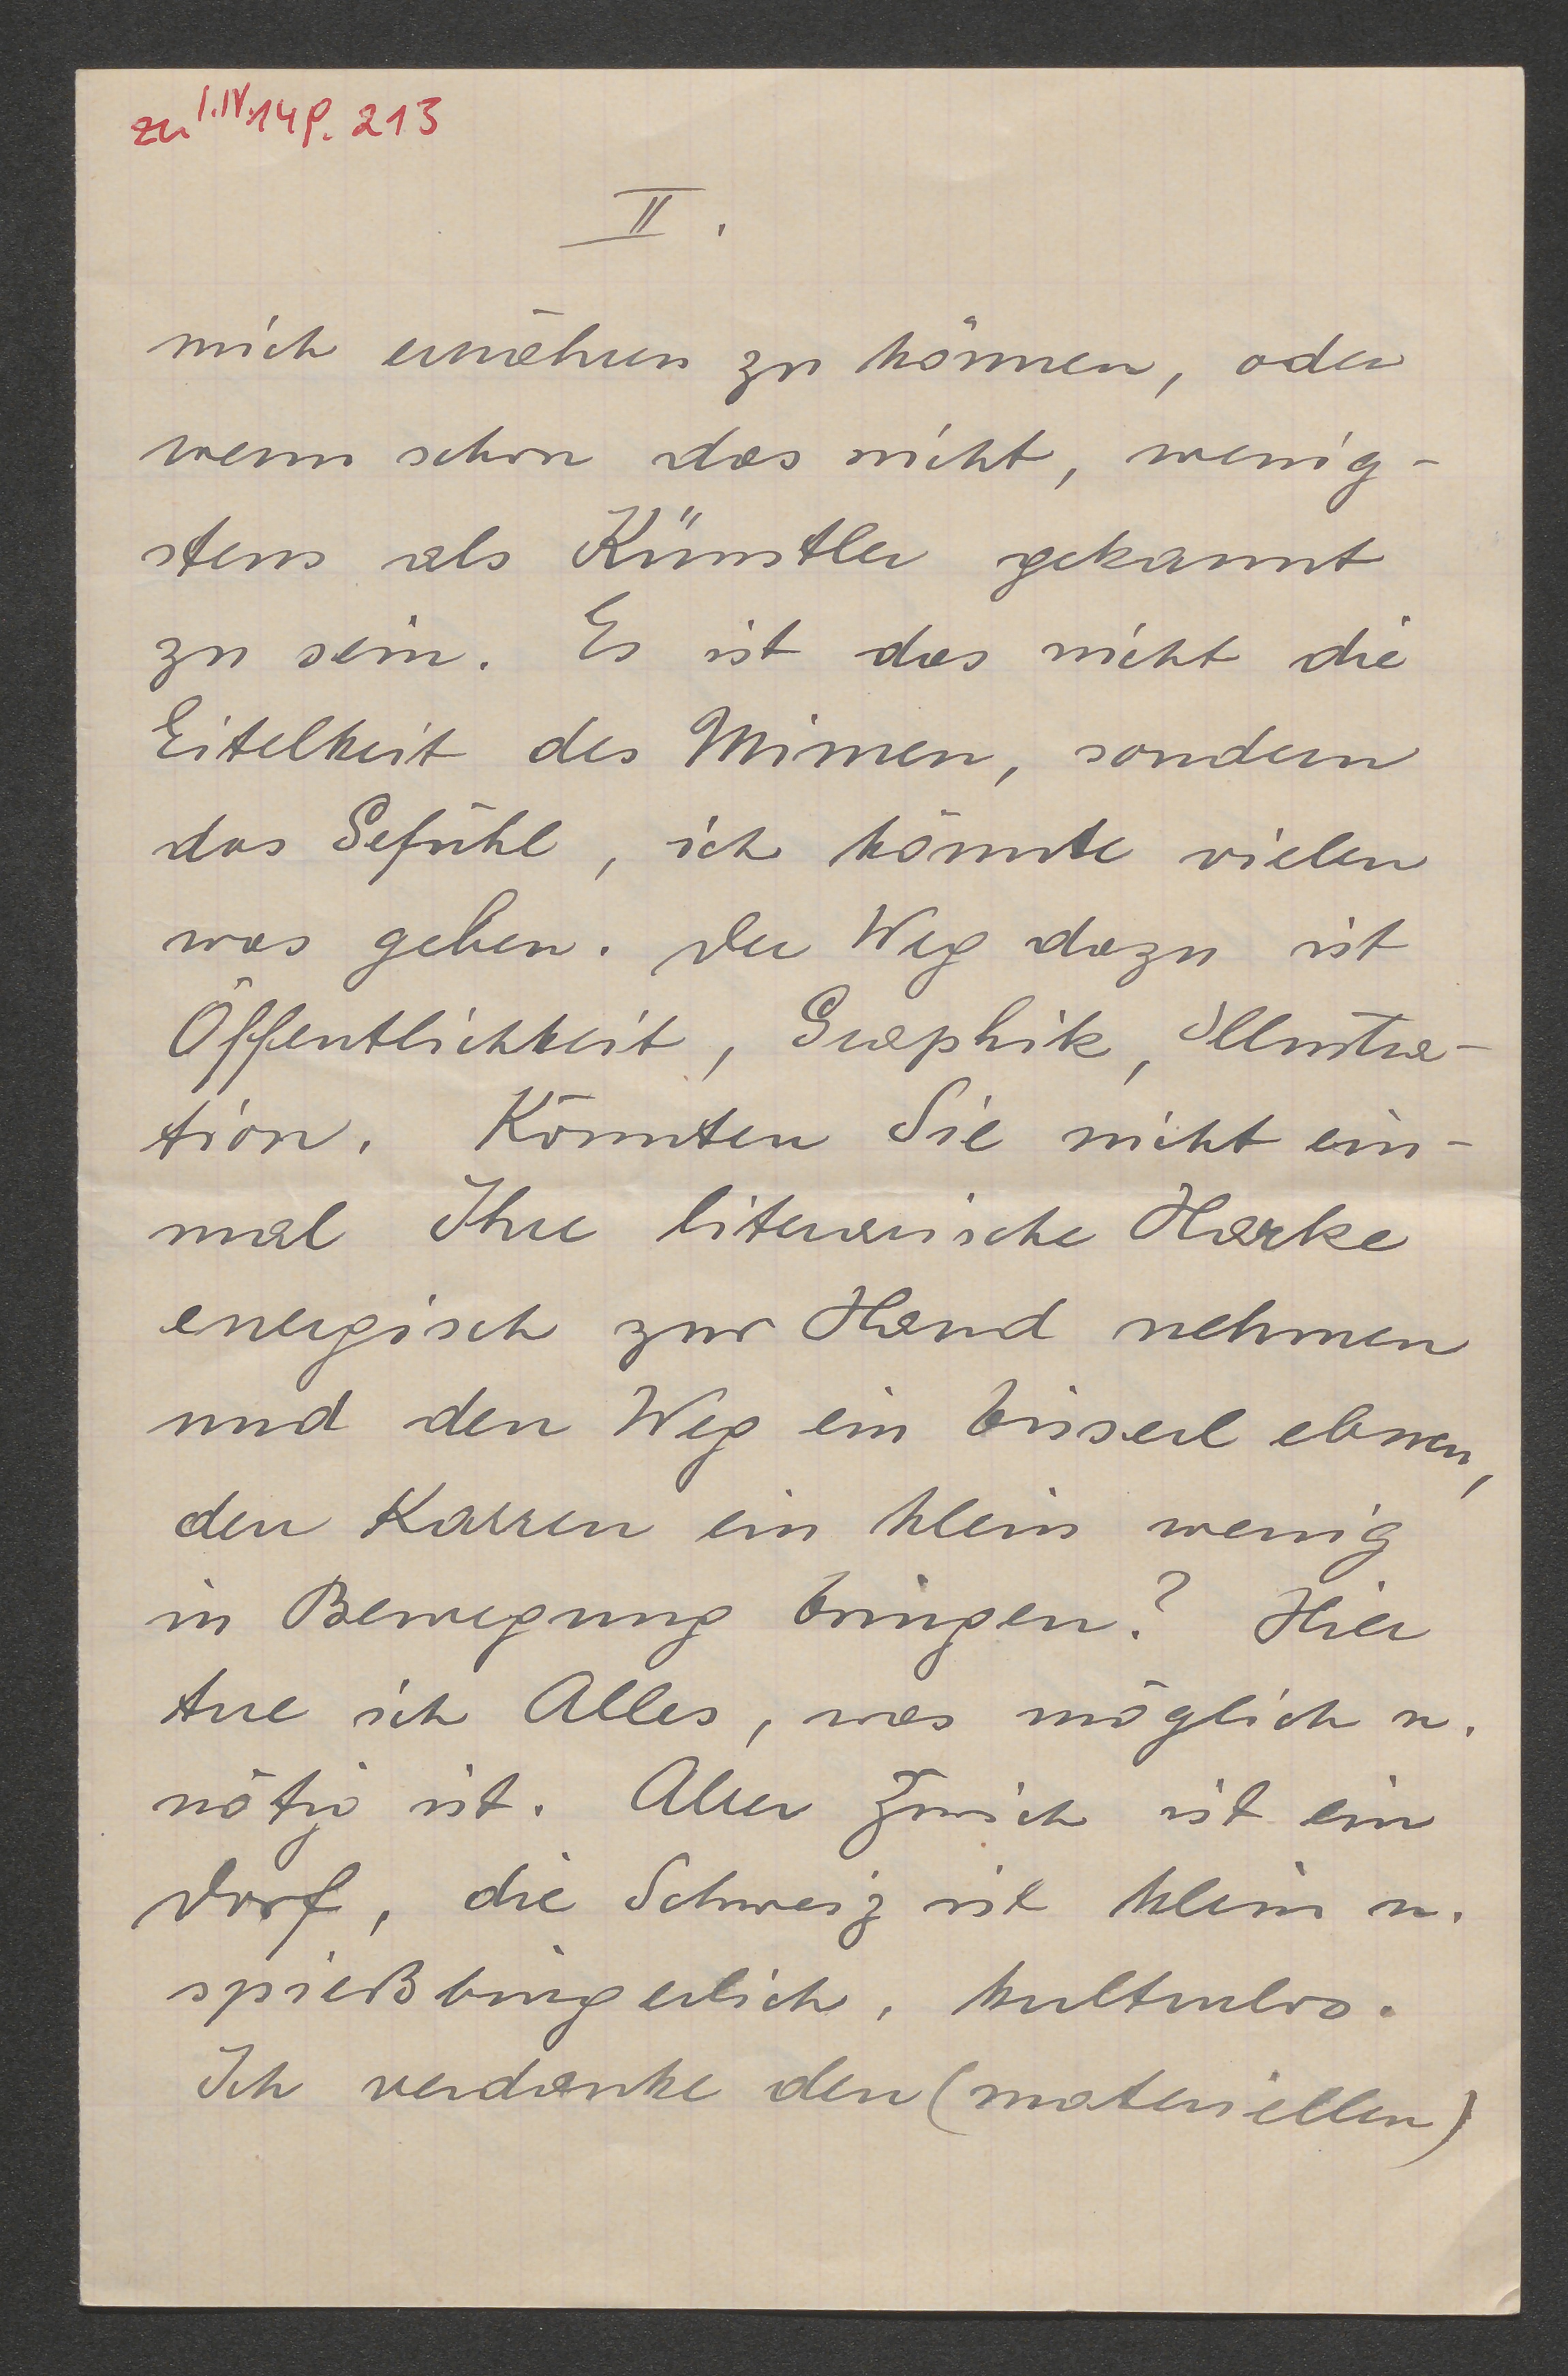 zu I.IV.14 p. 213
II.
mich ernähren zu können, oder
wenn schon das nicht, wenig-
stens als Künstler gekannt
zu sein. Es ist das nicht die
Eitelkeit des Mimen, sondern
das Gefühl, ich könnte vielen
was geben. Der Weg dazu ist
Öffentlichkeit, Graphik, Illustra-
tion. Könnten Sie nicht ein-
mal Ihre literarische Harke
energisch zur Hand nehmen
und den Weg ein bisserl ebnen,
den Karren ein klein wenig
in Bewegung bringen? Hier
tue ich Alles, was möglich u.
nötig ist. Aber Zürich ist ein
Dorf, die Schweiz ist klein u.
spießbürgerlich, kulturlos.
Ich verdanke den (materiellen)